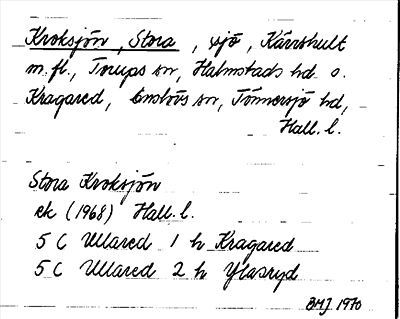 Kroksjön, Stora, sjö, Kärrshult
m.fl., Torups sn, Halmstads hd. o.
Kragared, Enslövs sn, Tönnersjö hd,
Hall. l.
Stora Kroksjön
ek (1968) Hall. l.
5 C Ullared 1 h Kragared
5 C Ullared 2 h Ylvsryd
BMJ 1970